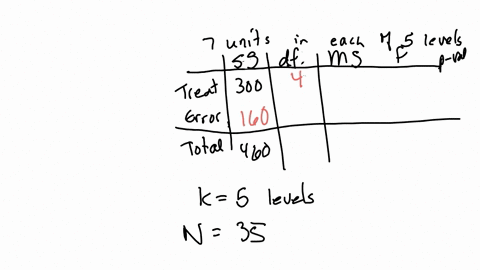 7 units in each of 5 levels
SS df. MS F p-val
Treat 300 4
Error 160
Total 460
K = 5 levels
N = 35